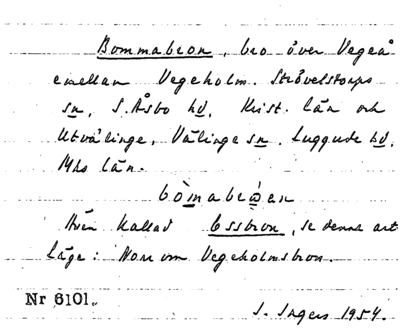 Bommabron, bro över Vegeå
emellan Vegeholm. Strövelstorps
sn, S. Åsbo hd, Krist. län och
Utvälinge, Välinge sn. Luggude hd,
Mhs län.
bòmabrỏen
Även kallad Essbron, se denna art
Läge: Norr om Vegeholmsbron.
Nr 6101.
S. Ingers 1954.